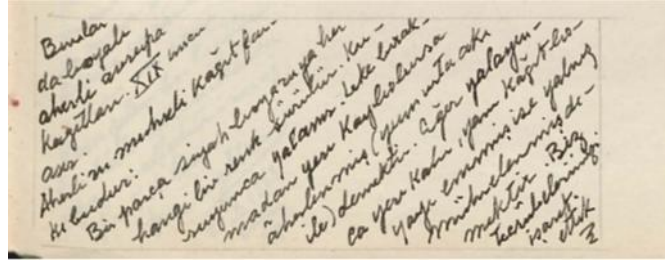 Bunlar
da boyalı
aherli avrupa
kağıtları. XIX uncu
asır.
Aherli ve mühreli kâğıt far-
kı budur:
Bir parça siyah boya suya her
hangi bir renk sürülür. Ku-
ruyunca yalanır. Leke bırak-
madan yeri kaybolursa
âherlenmiş (yumurta akı
ile) demektir. Eğer yalayın-
ca yeri kalır, yani kâğıt bo-
yayı emmiş ise yalnız
mührelenmiş de-
mektir. Biz
tecrübelerimizi
işaret
ettik